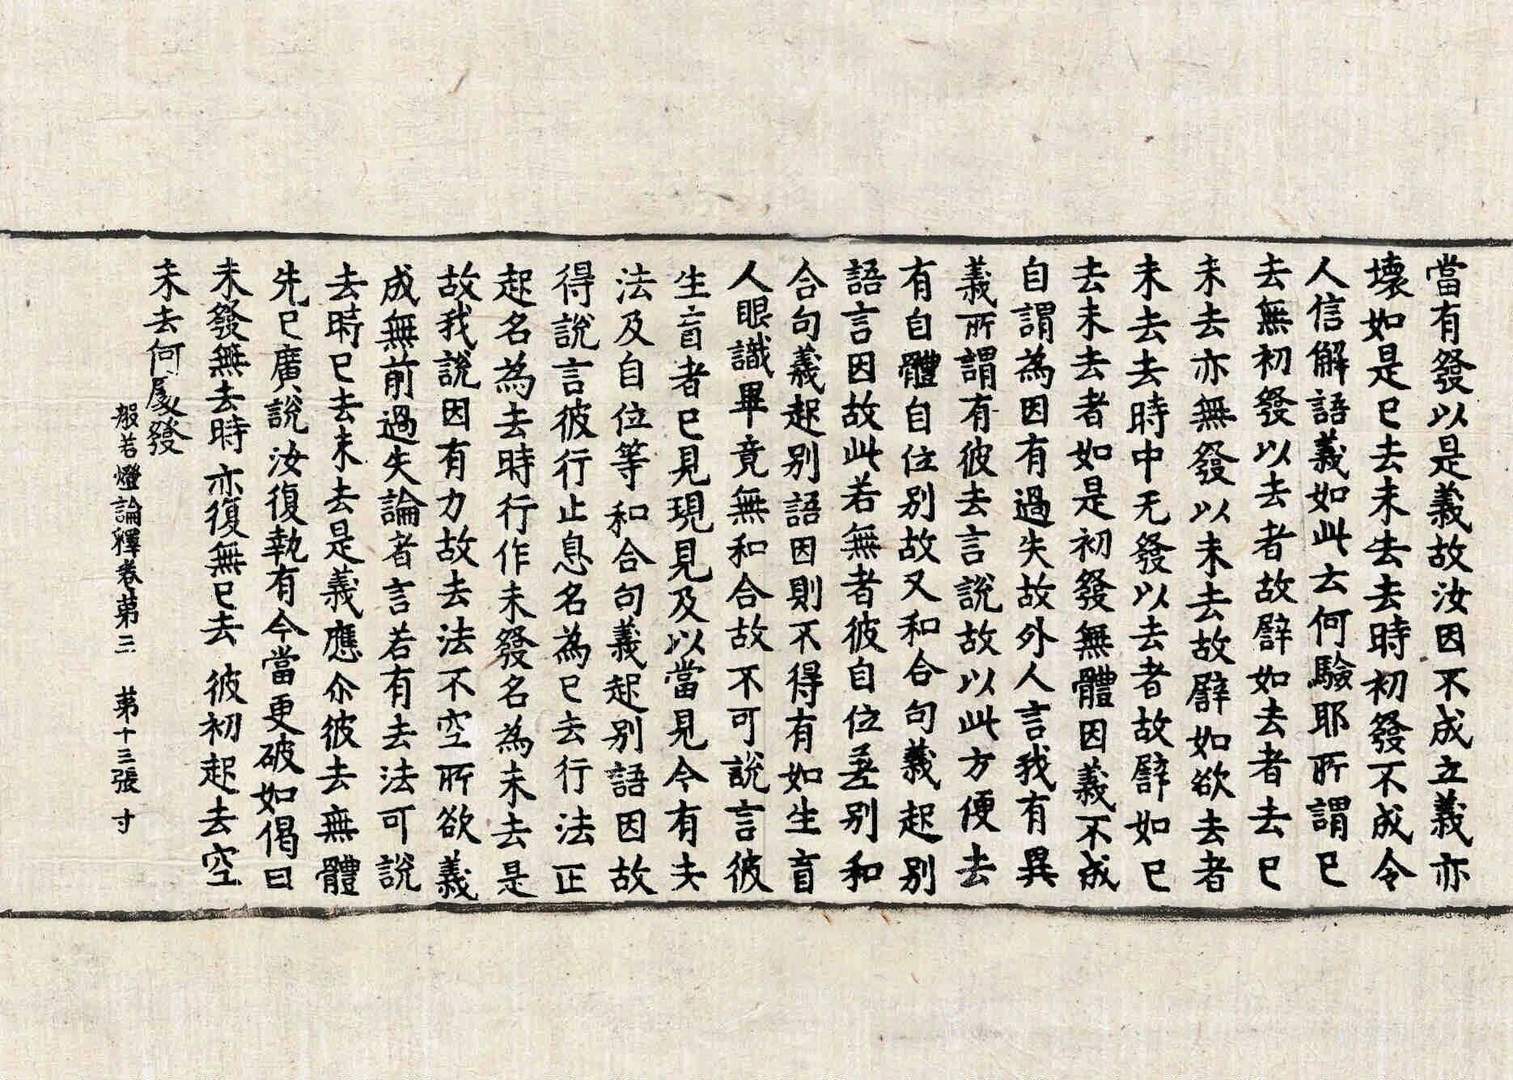 當有發以是義故汝因不成立義亦
壊如是已去未去去時初發不成令
人信解語義如此云何驗耶所謂已
去無初發以去者故譬如去者去已
未去亦無發以未去故譬如欲去者
未去去時中无發以去者故譬如已
去未去者如是初發無體因義不成
自謂為因有過失故外人言我有異
義所謂有彼去言說故以此方便去
有自體自位別故又和合句義起別
語言因故此若無者彼自位差別和
合句義起別語因則不得有如生盲
人眼識畢竟無和合故不可說言彼
生盲者已見現見及以當見今有夫
法及自位等和合句義起別語因故
得說言彼行止息名為已去行法正
起名為去時行作未發名為未去是
故我說因有力故去法不空所欲義
成無前過失論者言若有去法可說
去時已去未去是義應尒彼去無體
先已廣說汝復執有今當更破如偈曰
未發無去時 亦復無已去 彼初起去空
未去何處發
般若燈論釋卷第三 第十三張 寸